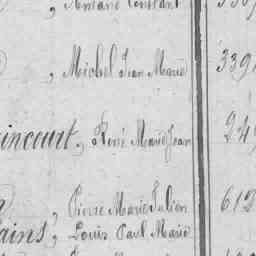 , Armand Constant
, Michel Jean Marie 339
incourt, René Marie Jean 249
, Pierre Marie Julien 612
ains, Louis Paul Marie